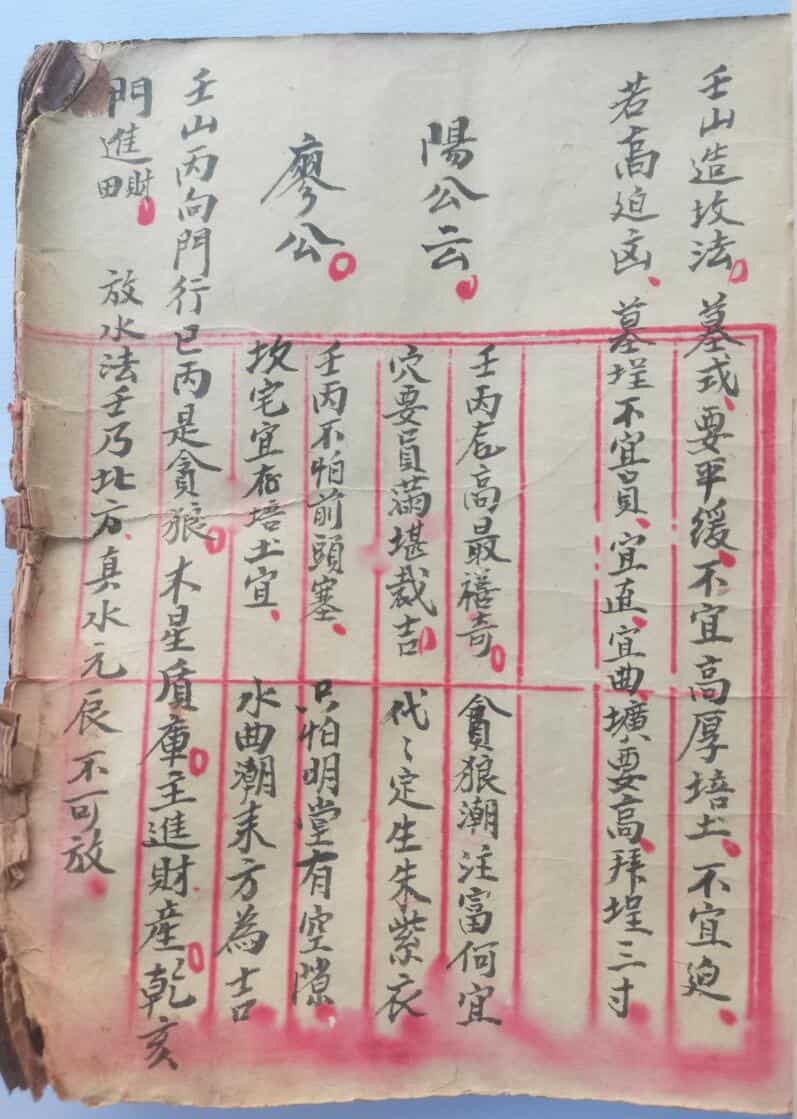 壬山造坟法、墓式、要平緩、不宜高厚培土、不宜迫、
若高迫凶、墓埕不宜員、宜直、宜曲、壙要高、拜埕三寸
陽公云、
壬丙龙高最禧奇、貪狼潮注富何宜
穴要員滿堪裁吉、代〻定生朱紫衣
廖公。
壬丙不怕前頭塞、只怕明堂有空隙、
坟宅宜存培土宜、水曲潮来方為吉
壬山丙向門行巳丙是貪狼。木星盾庫。主進財產。乾亥
門進田財。放水法壬乃北方、真水元辰不可放、